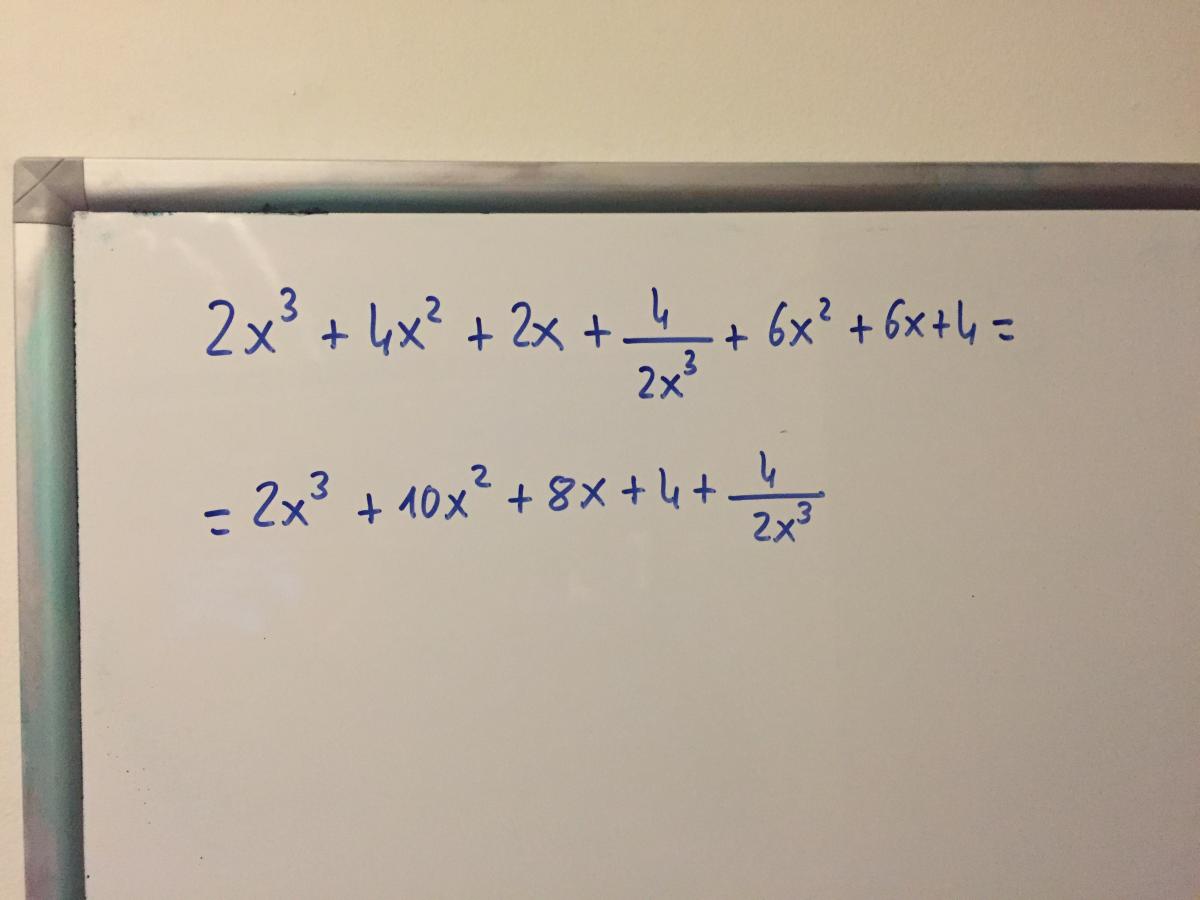 2x³ + 4x² + 2x + 4/2x³ + 6x² + 6x + 4 =
= 2x³ + 10x² + 8x + 4 + 4/2x³